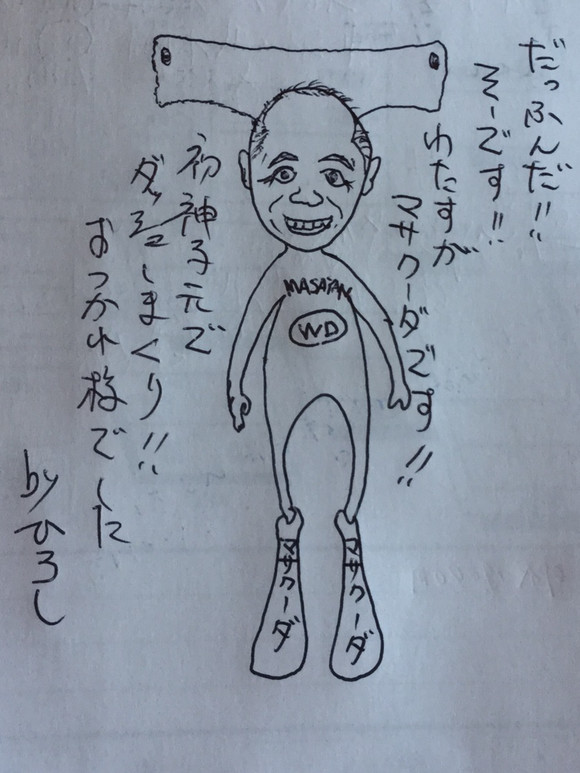 だっふんだ!!
そーです!!
わたすが
マサクーダです!!
初神子元で
ダッシュしまくり!!
おつかれ様でした
byひろし
MASATAN
WD
マサクーダ
マサクーダ